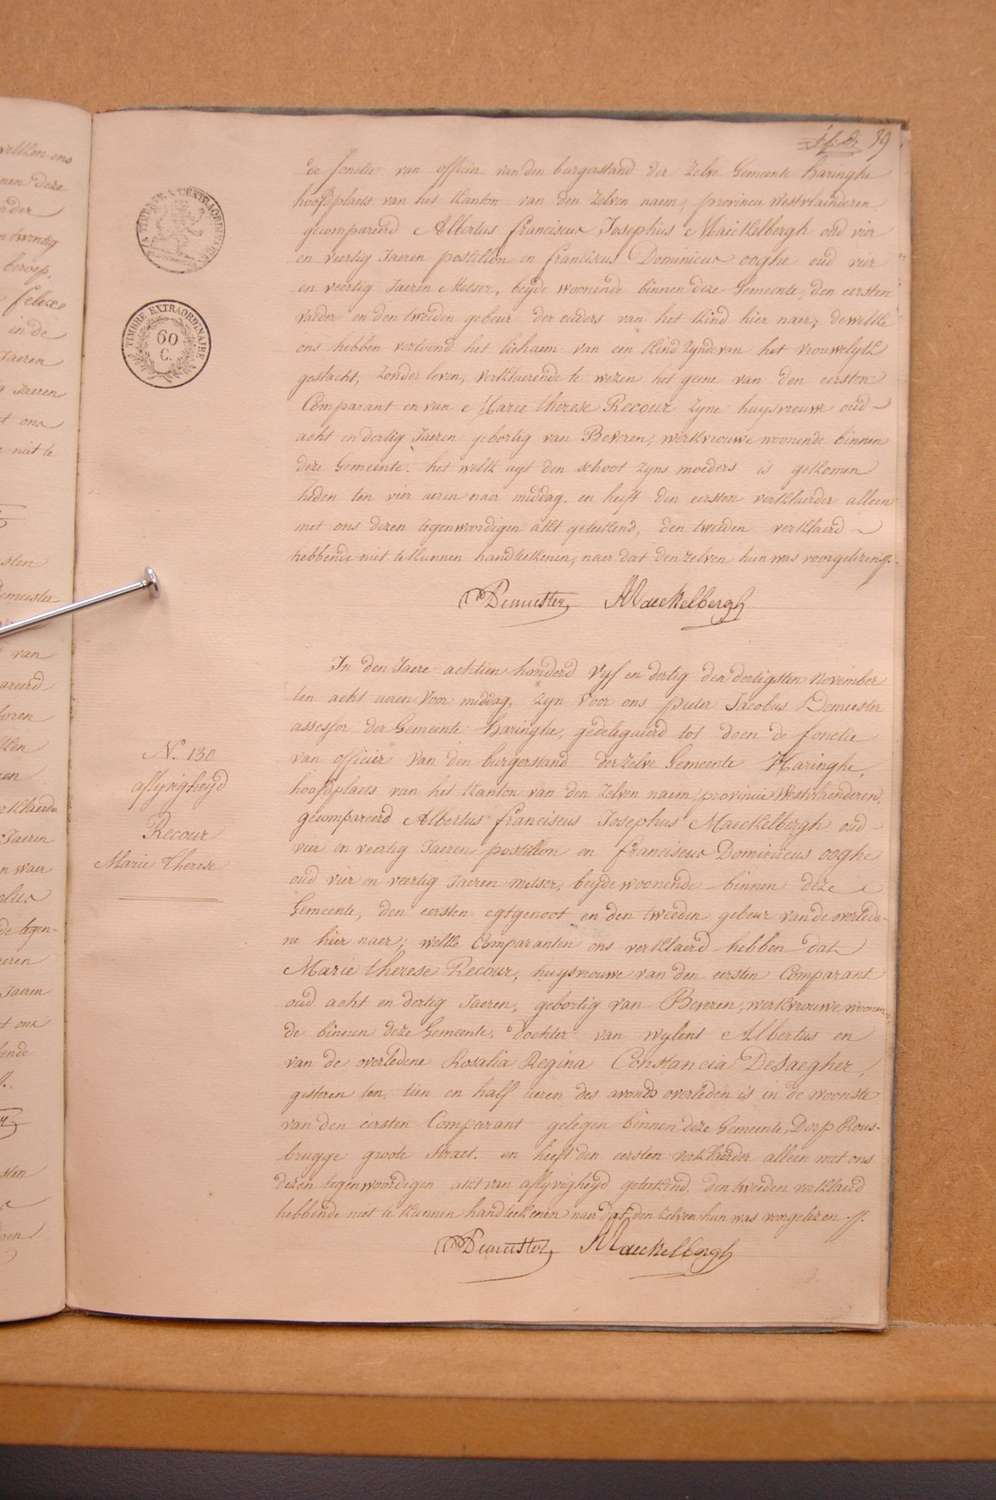 39
de fonctie van officier van den burgerstand der zelve Gemeente haringhe
hoofdplaets van het kanton van den zelven naem, provincie Westvlaenderen
gecompareerd Albertus franciscus Josephus Maeckelbergh oud vier
en veertig Jaeren postillon en franciscus Dominicus ooghe oud vier
en veertig Jaeren Metser, beyde woonende binnen deze Gemeente, den eersten
vader en den tweeden gebeur der ouders van het kind hier naer, dewelke
ons hebben vertoond het lichaem van een kind zynde van het vrouwelyk
geslacht, zonder leven, verklaerende te wezen het gene van den eersten
Comparant en van Marie therese Recour zyne huysvrouw oud
acht en dertig Jaeren gebortig van Beveren, werkvrouwe woonende binnen
deze Gemeente. het welk uyt den schoot zyns moeders is gekomen
heden ten vier ueren naer middag. en heeft den eersten verklaerder alleen
met ons dezen tegenwoordigen akt geteekend, den tweeden verklaerd
hebbende niet te kunnen handteekenen, naer dat den zelven hun was voorgelezen
Demeester Maeckelbergh
TIMBRE EXTRAORDINAIRE
60
C.
In den Jaere achtien honderd vyf en dertig den dertigsten November
ten acht ueren voor middag, zyn voor ons pieter Jacobus Demeester
assessor der Gemeente haringhe, gedelegueerd tot doen de fonctie
van officier van den burgerstand der zelve Gemeente Haringhe,
hoofdplaets van het kanton van den zelven naem provincie Westvlaenderen,
gecompareerd Albertus franciscus Josephus Maeckelbergh oud
vier en veertig Jaeren postillon en franciscus Dominicus ooghe
oud vier en veertig Jaeren metser, beyde woonende binnen deze
Gemeente, den eersten egtgenoot en den tweeden gebeur van de overlede-
ne hier naer; welke Comparanten ons verklaerd hebben dat
Marie therese Recour, huysvrouwe van den eersten Comparant
oud acht en dertig Jaeren, gebortig van Beveren, werkvrouwe woonen
de binnen deze Gemeente, dochter van wylent Albertus en
van de overledene Rosalia Regina Constancia DeSaegher,
gisteren ten tien en half ueren des avonds overleden is in de woonste
van den eersten Comparant gelegen binnen deze Gemeente, Dorp Rous-
brugge groote straet. en heeft den eersten verklaerder alleen met ons
dezen tegenwoordigen akt van aflyvigheyd geteekend, den tweeden verklaerd
hebbende niet te kunnen handteekenen naer dat den zelven hun was voorgelezen
Demeester Maeckelbergh
N. 130
aflyvigheyd
Recour
Marie therese